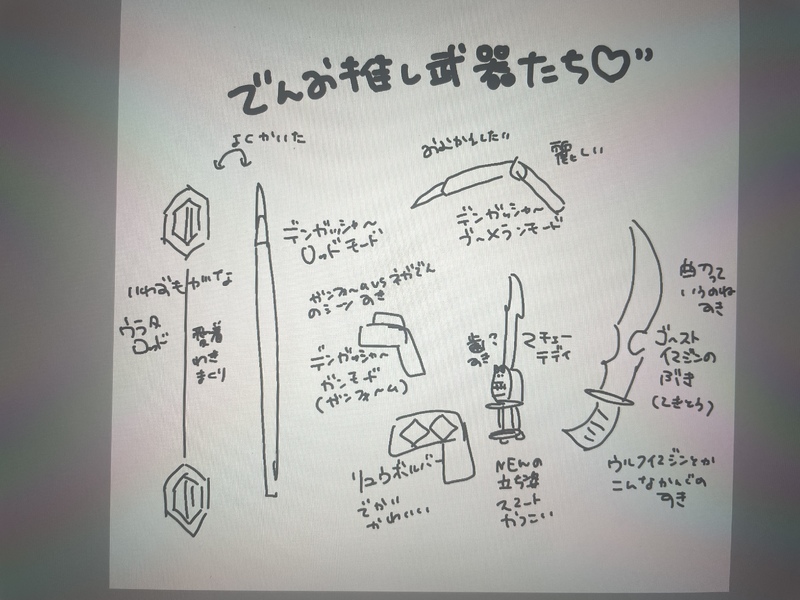 でんお推し武器たち♡"
よくかいた
デンガッシャー
ロッドモード
ウラタ
ロッド
愛着
わき
まくり
おむかえしたい
麗しい
デンガッシャー
ブーメランモード
ガンフォームvsネガでん
のシーン すき
デンガッシャー
ガンモード
(ガンフォーム)
リュウボルバー
でかい
かわいい
歯?
すき
マチェー
テディ
NEWの
立ち姿
スマート
かっこいい
曲刀って
いうのね
すき
ゴースト
イマジンの
ぶき
ウルフイマジンとか
こんなかんじの
すき